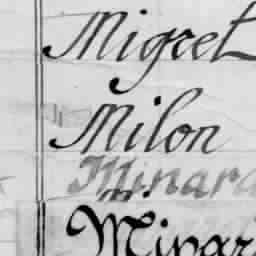 Migret
Milon
Minard
Minar